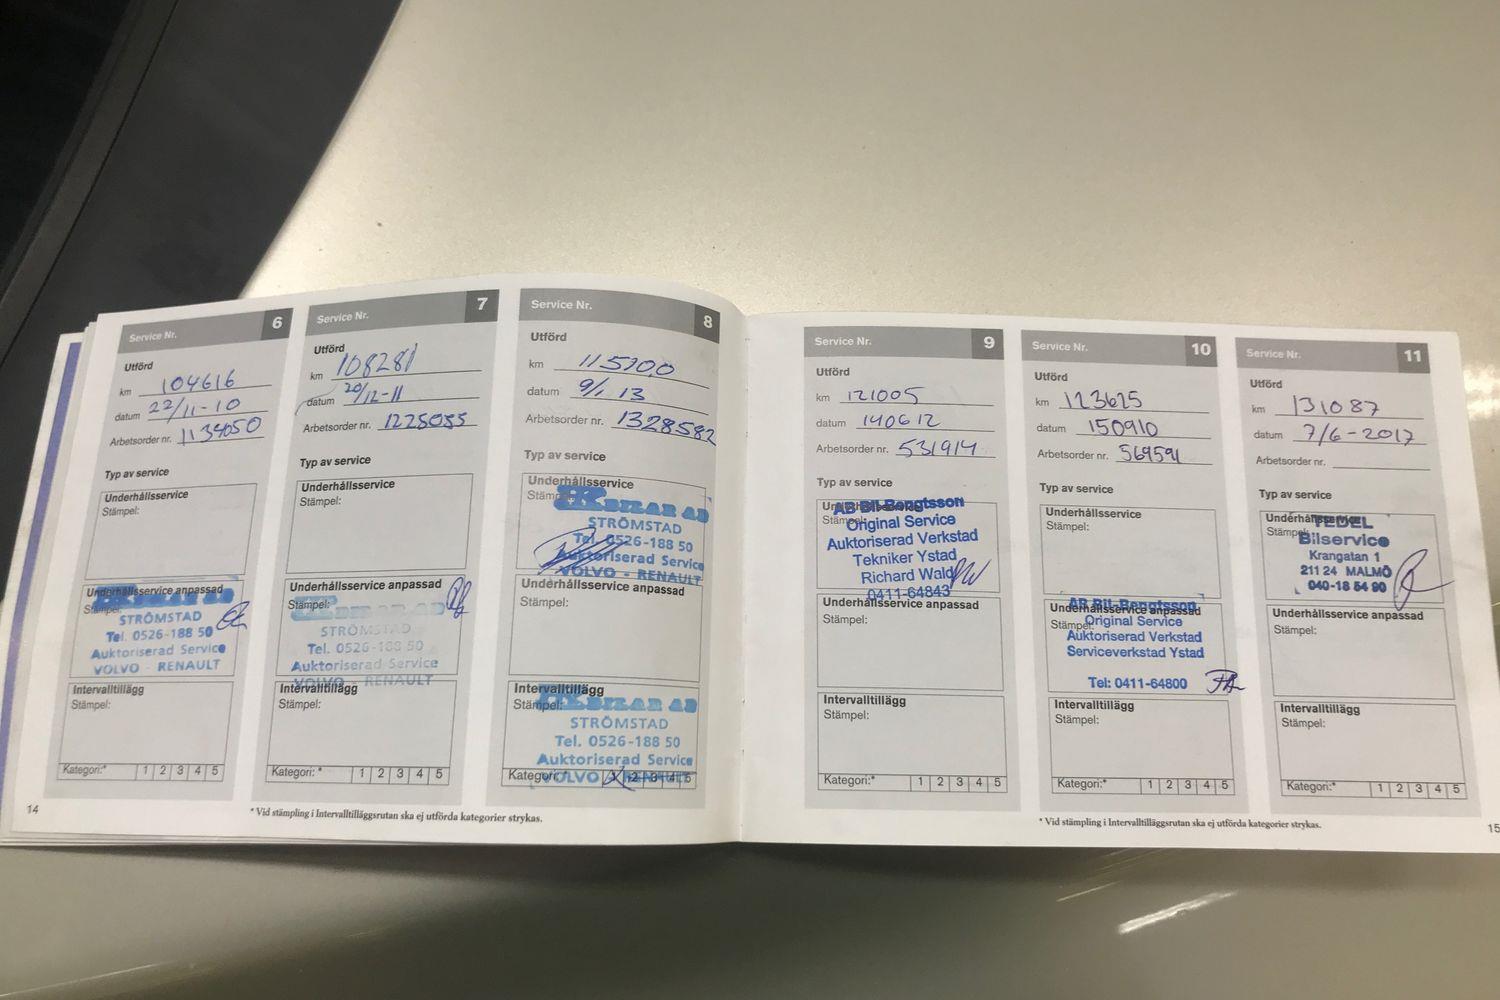 Service Nr. 6
Utförd
km 104616
datum 22/11-10
Arbetsorder nr. 1134050
Typ av service
Underhållsservice
Stämpel:
Underhållsservice anpassad
Stämpel:
STRÖMSTAD
Tel. 0526-188 50
Auktoriserad Service
VOLVO - RENAULT
Intervalltillägg
Stämpel:
Kategori:* 1 2 3 4 5
14
Service Nr. 7
Utförd
km 108281
datum 20/12-11
Arbetsorder nr. 1225085
Typ av service
Underhållsservice
Stämpel:
Underhållsservice anpassad
Stämpel:
BILAR AB
STRÖMSTAD
Tel. 0526-188 50
Auktoriserad Service
VOLVO - RENAULT
Intervalltillägg
Stämpel:
Kategori:* 1 2 3 4 5
Service Nr. 8
Utförd
km 115700
datum 9/1 13
Arbetsorder nr. 1328582
Typ av service
Underhållsservice
Stämpel:
BILAR AB
STRÖMSTAD
Tel. 0526-188 50
Auktoriserad Service
VOLVO - RENAULT
Underhållsservice anpassad
Stämpel:
Intervalltillägg
Stämpel:
BILAR AB
STRÖMSTAD
Tel. 0526-188 50
Auktoriserad Service
Kategori:* VOLVO 1 2 3 4 5
* Vid stämpling i Intervalltilläggsrutan ska ej utförda kategorier strykas.
Service Nr. 9
Utförd
km 121005
datum 140612
Arbetsorder nr. 531914
Typ av service
Underhållsservice
Stämpel:
AB Bil-Bengtsson
Original Service
Auktoriserad Verkstad
Tekniker Ystad
Richard Wald
0411-64843
Underhållsservice anpassad
Stämpel:
Intervalltillägg
Stämpel:
Kategori:* 1 2 3 4 5
Service Nr. 10
Utförd
km 123625
datum 150910
Arbetsorder nr. 569591
Typ av service
Underhållsservice
Stämpel:
Underhållsservice anpassad
Stämpel:
AB Bil-Bengtsson
Original Service
Auktoriserad Verkstad
Serviceverkstad Ystad
Tel: 0411-64800
Intervalltillägg
Stämpel:
Kategori:* 1 2 3 4 5
Service Nr. 11
Utförd
km 131087
datum 7/6-2017
Arbetsorder nr.
Typ av service
Underhållsservice
Stämpel:
TEDEL
Bilservice
Krangatan 1
211 24 MALMÖ
040-18 54 90
Underhållsservice anpassad
Stämpel:
Intervalltillägg
Stämpel:
Kategori:* 1 2 3 4 5
* Vid stämpling i Intervalltilläggsrutan ska ej utförda kategorier strykas.
15